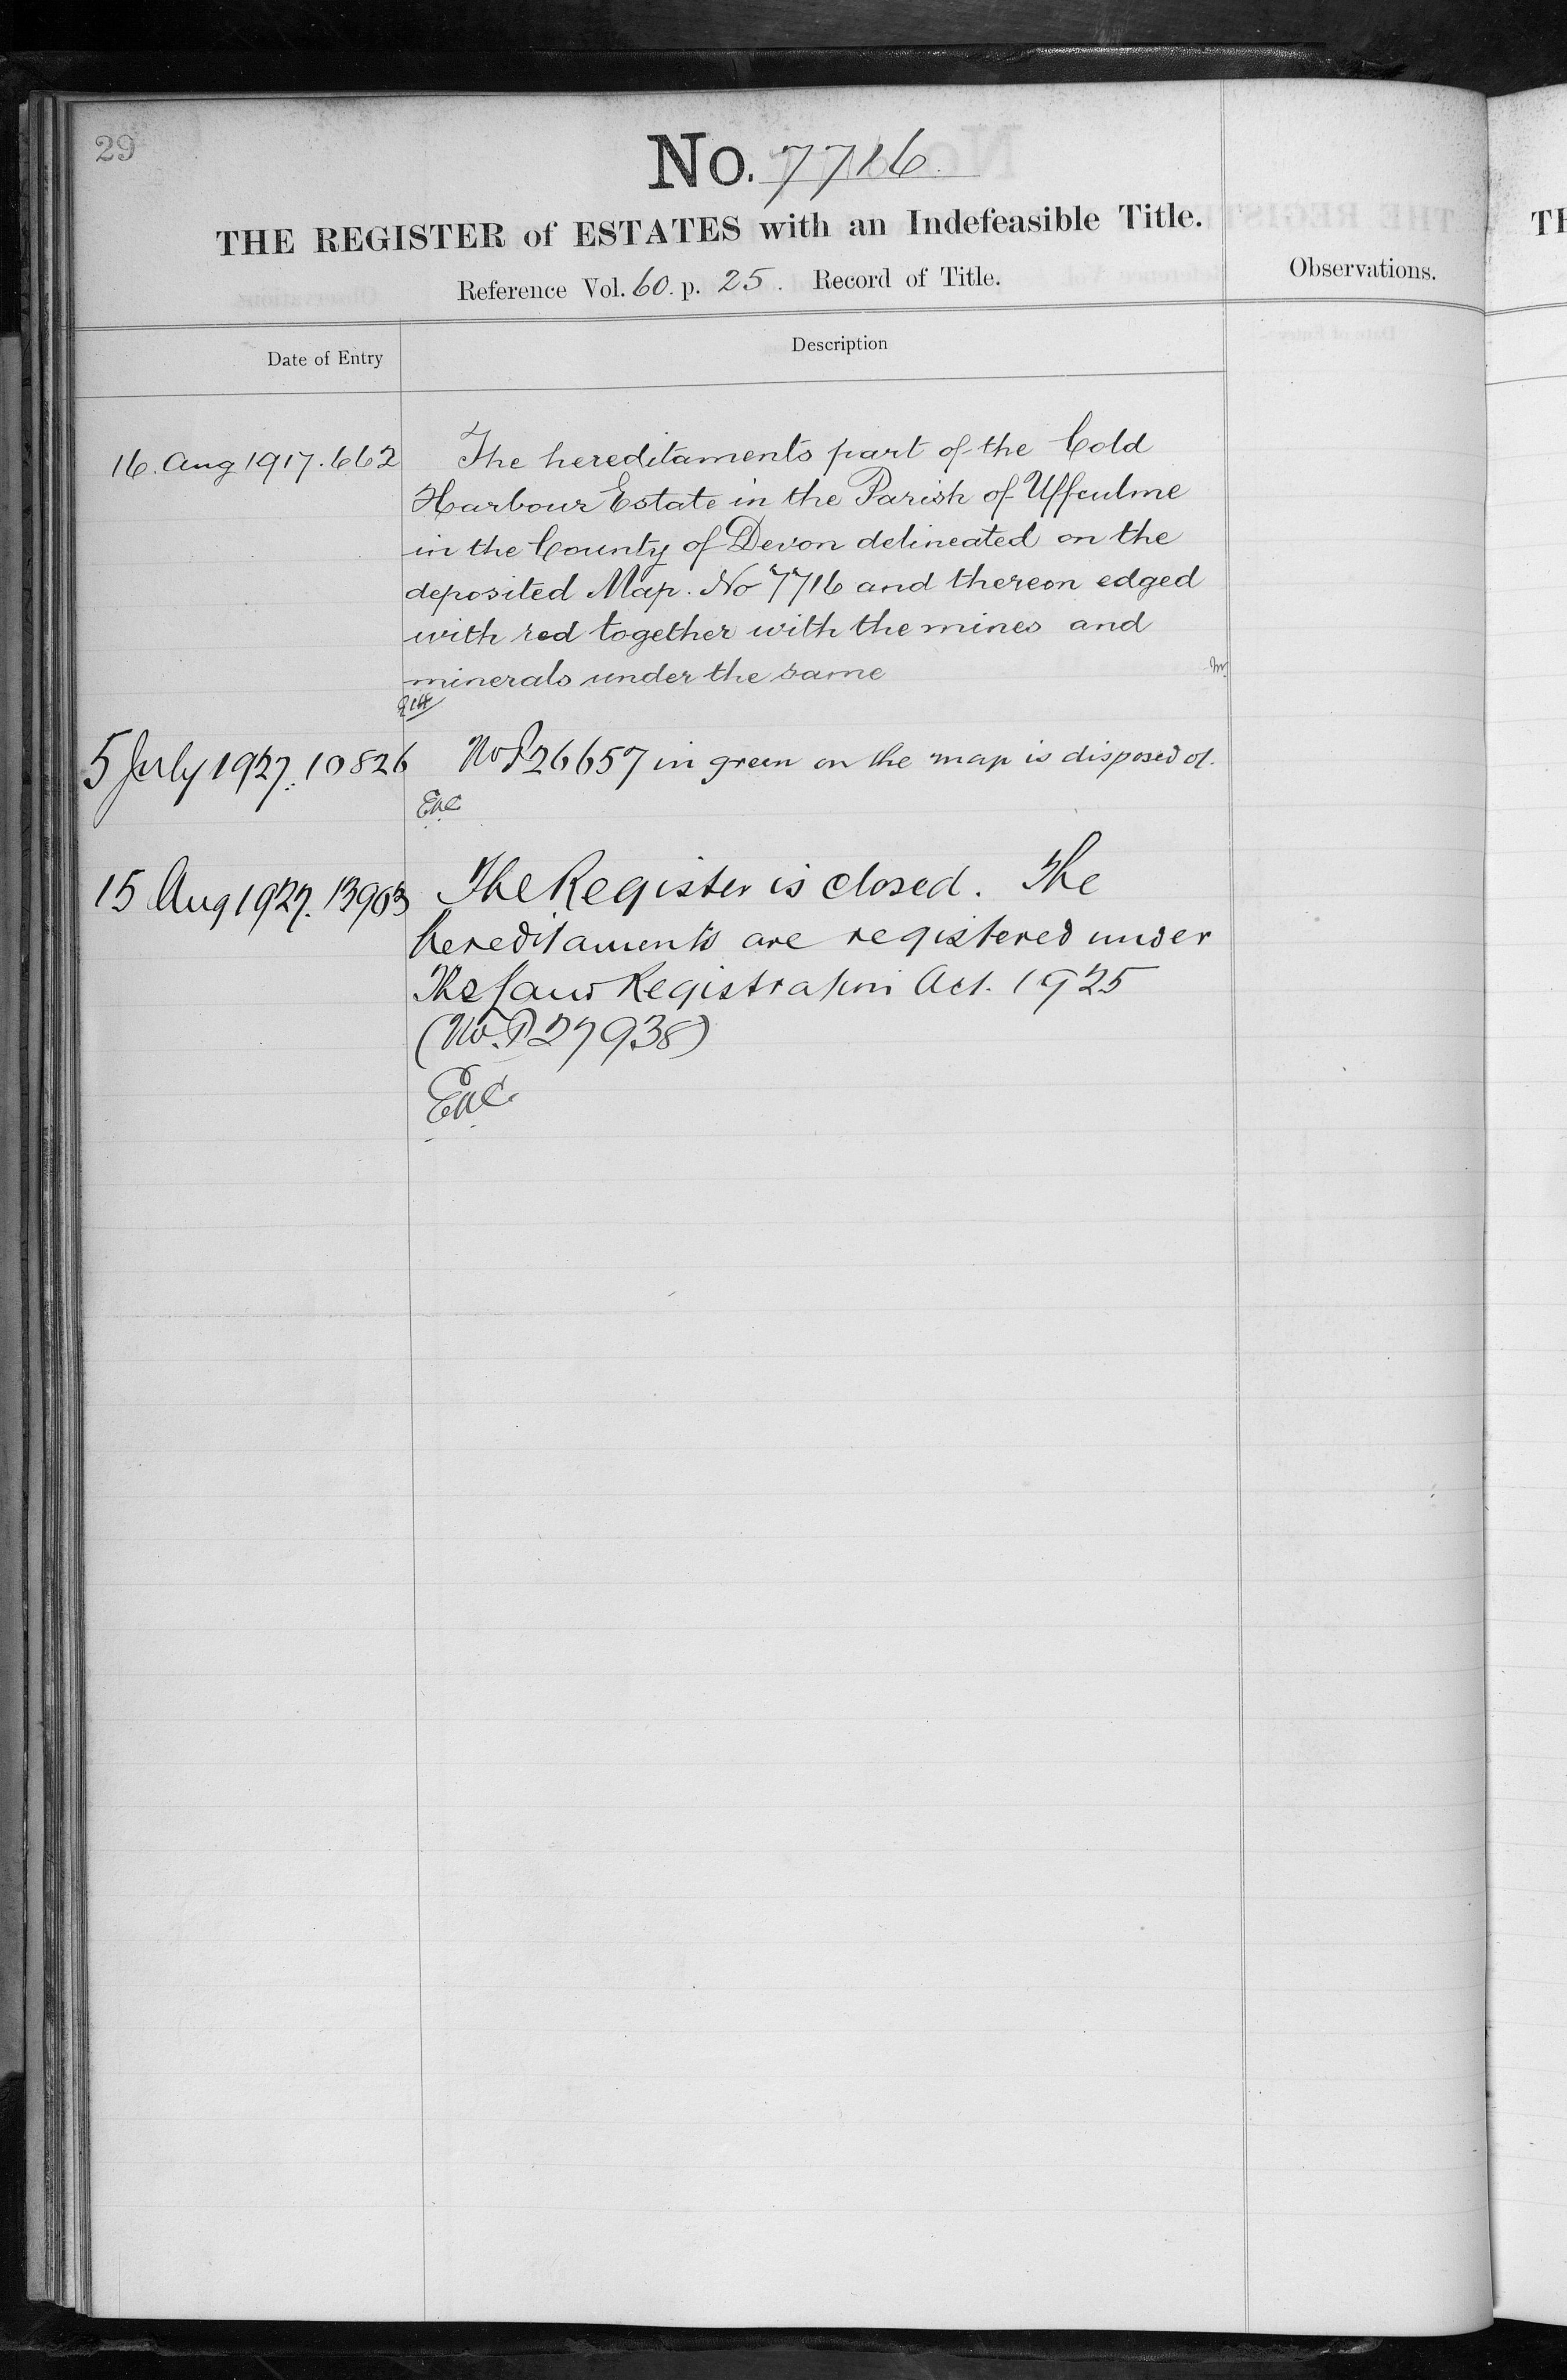 29
No. 7716.
THE REGISTER of ESTATES with an Indefeasible Title.
Reference Vol. 60. p. 25. Record of Title.
Observations.
Date of Entry
Description
16. Aug 1917. 662
The hereditaments part of the Cold
Harbour Estate in the Parish of Uffculme
in the County of Devon delineated on the
deposited Map. No 7716 and thereon edged
with red together with the mines and
minerals under the same
5 July 1927. 10826
No P26657 in green on the map is disposed of.
15 Aug 1927. 13903
The Register is closed. The
hereditaments are registered under
The Land Registration Act. 1925
(No. P27938)
TH